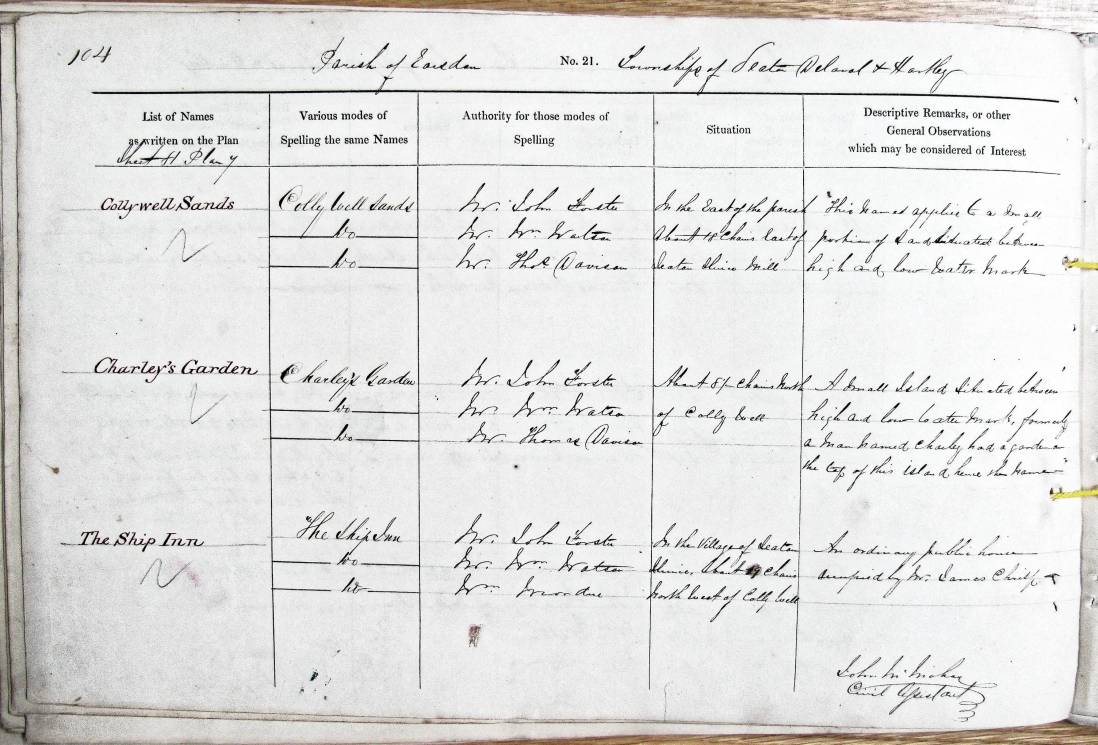 104
Parish of Earsdon No. 21. Townships of Seaton Delaval & Hartley
List of Names as written on the Plan
Various modes of Spelling the same Names
Authority for those modes of Spelling
Situation
Descriptive Remarks, or other General Observations which may be considered of Interest
Sheet H Plan 7
Collywell Sands
Colly Well Sands
Do
Do
Mr. John Forster
Mr. Wm Watson
Mr. Thos Davison
In the East of the parish
About 18 Chains East of
Seaton Sluice Mill
This Name applies to a Small
portion of Sand Situated between
high and low Water Mark
Charley's Garden
Charley's Garden
Do
Do
Mr. John Forster
Mr. Wm Watson
Mr. Thomas Davison
About Chains North
of Colly Well
A Small Island Situated between
high and low Water Mark, formerly
a Man Named Charley had a garden on
the top of this island hence the Name
The Ship Inn
The Ship Inn
Do
Do
Mr. John Forster
Mr. Wm Watson
Wm
In the Village of Seaton
Sluice, About Chains
North West of Colly Well
An ordinary public house
occupied by Mr. James
John
Civil Assistant